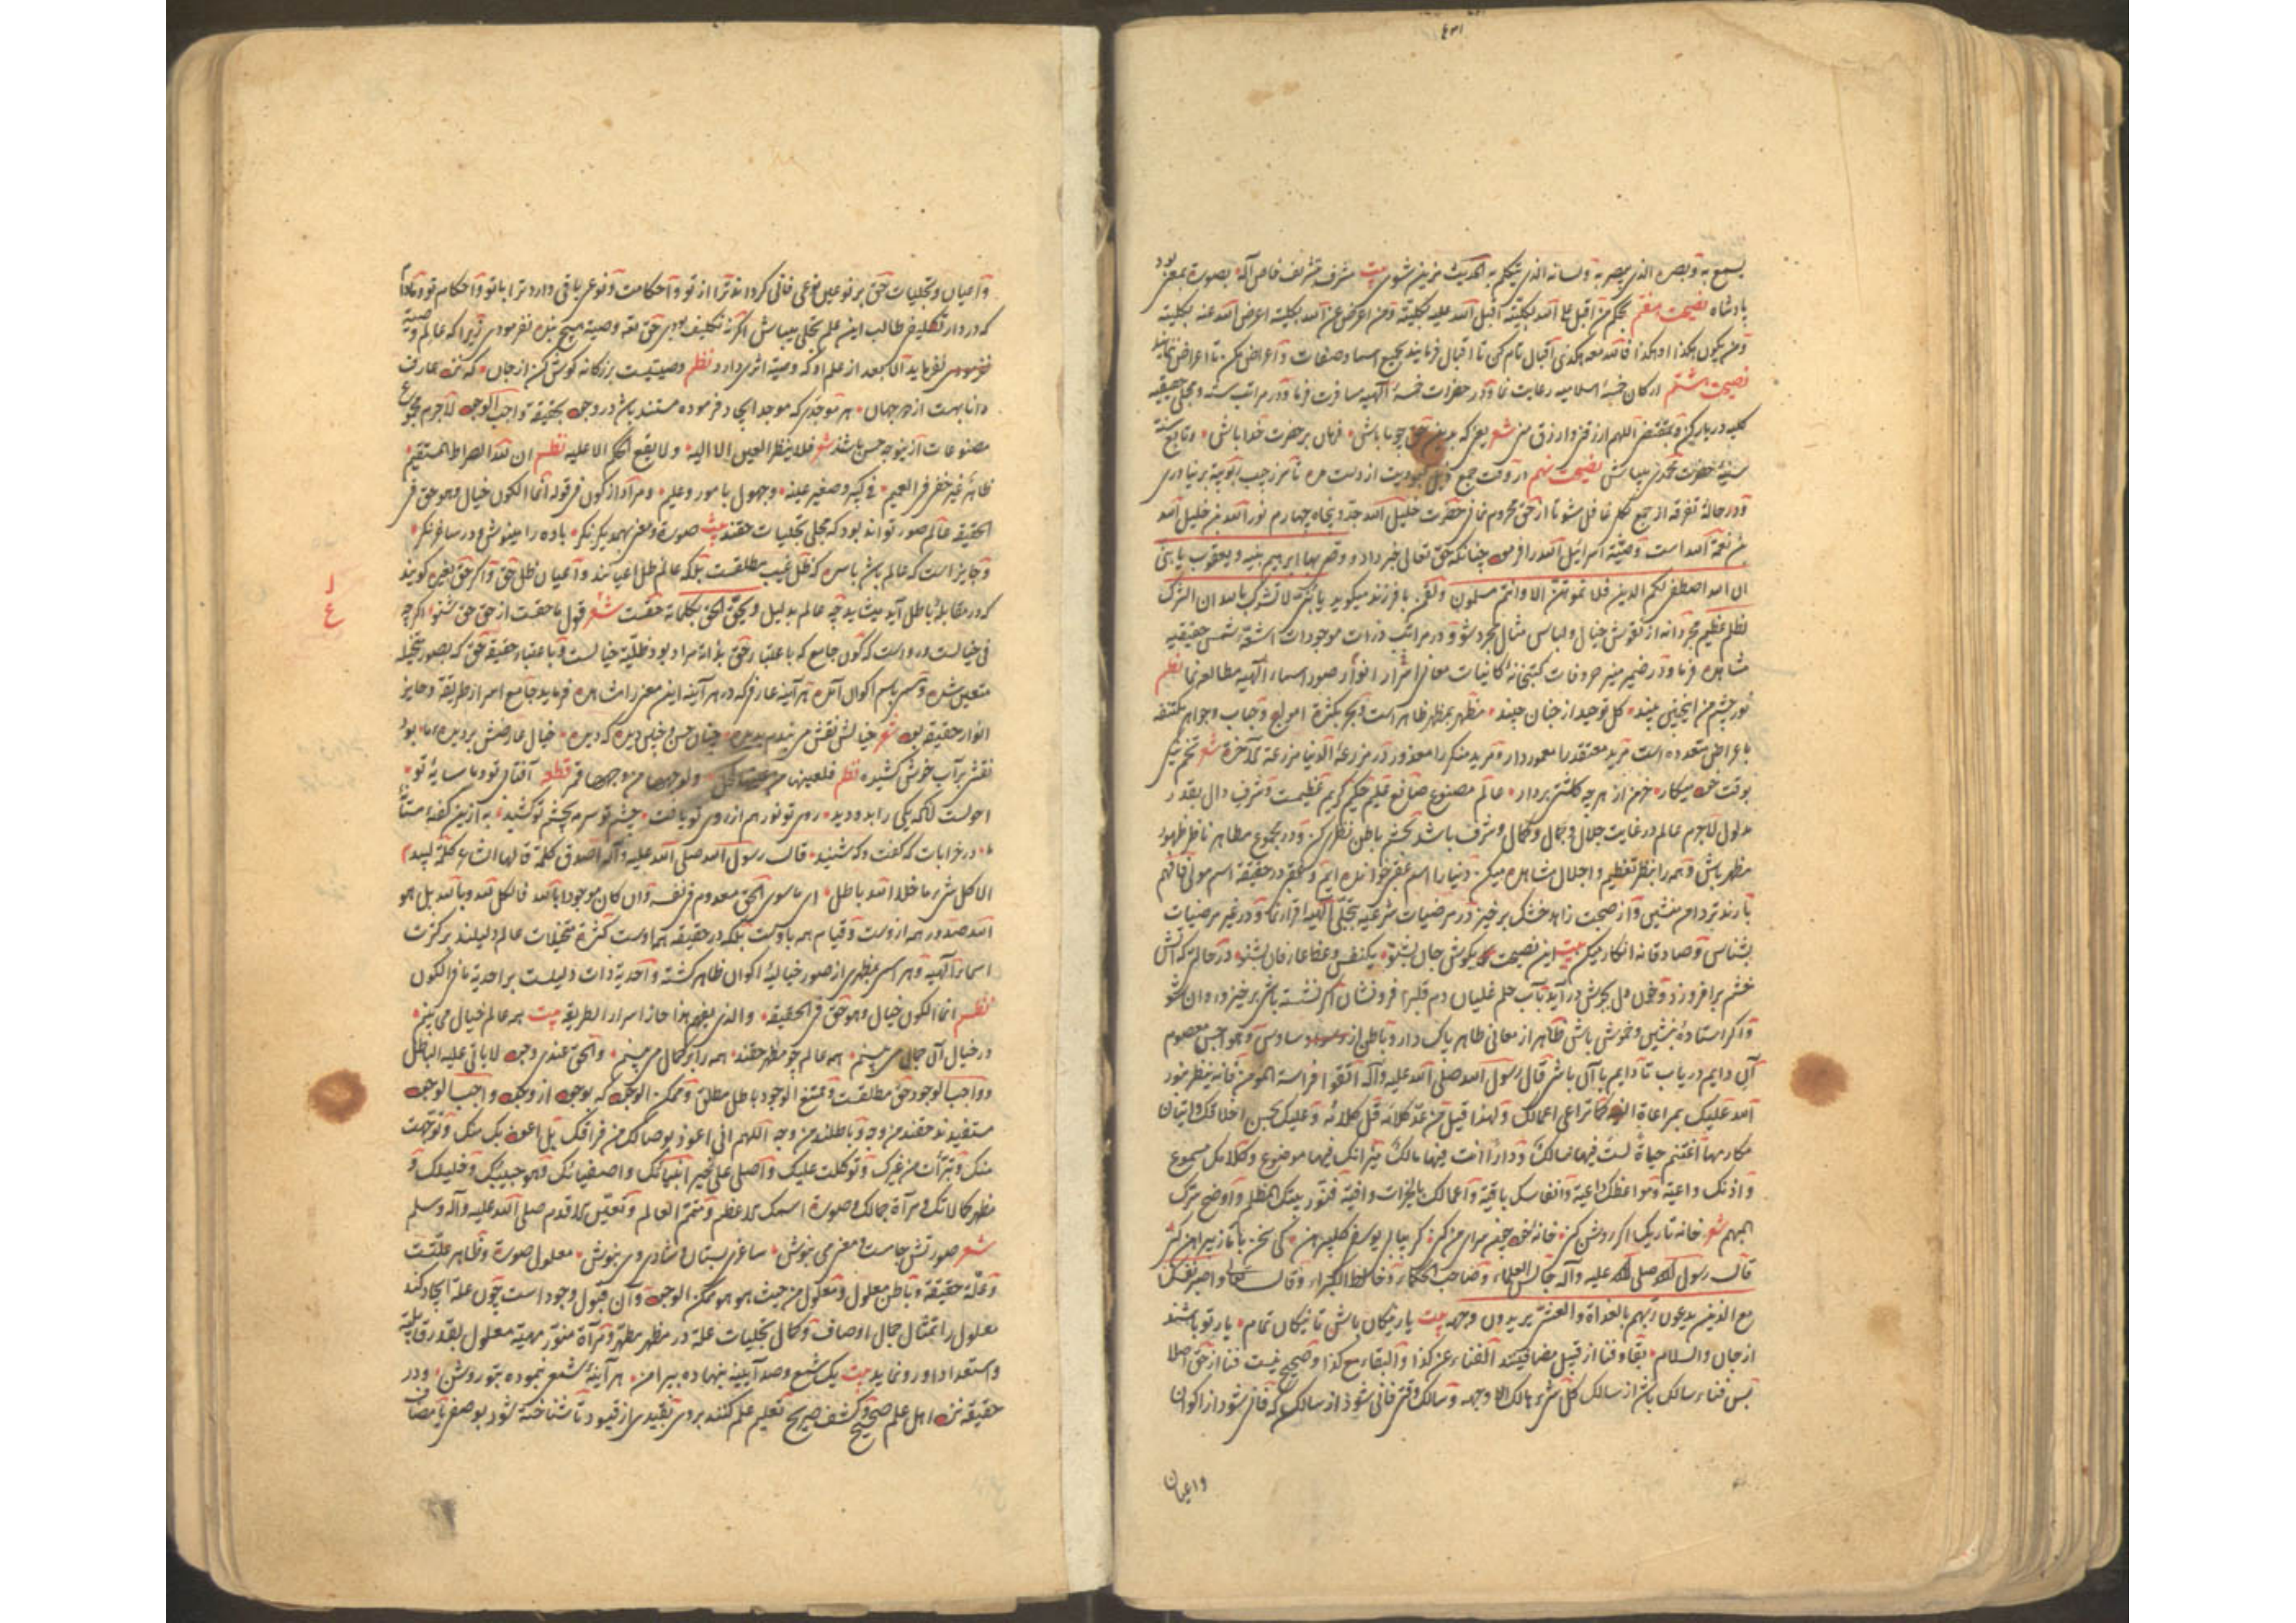 یسمع به وبصره الذی یبصر به ولسانه الذی یتکلم به الحدیث مزین شوی بیت مشرف بتشریف خاص آله بصورة بمعنی بود
پادشاه نصیحت هفتم بحکم من اقبل علی الله بکلیته اقبل الله علیه بکلیته ومن اعرض عن الله بکلیته اعرض الله عنه بکلیته
ومن یکون هکذا او هکذا فالله معه هکذی اقبال تام کن تا اقبال فرمایند بجمیع اسما وصفات واعراض مکن تا اعراض ننمایند
نصیحت هشتم ارکان خمسهٔ اسلامیه رعایت نما ودر حضرات خمسهٔ آلهیه مسافرت فرما ودر مراتب سته
کلبه در بار کن وبمقتضی اللهم ارزقنی وارزق منی شعر یعنی که بدین حق جویا باش فرمان بر حضرت خدا باش وتابع سنت
سنیهٔ حضرت محمدی میباش نصیحت نهم در وقت جمع ذیل عبودیت از دست مده تا سر ز جیب ربوبیة بر نیاری
ودر حالهٔ تفرقه از جمع کل غافل مشو تا از حق محروم نمانی حضرت خلیل الله جد پنجاه چهارم نور الله بن خلیل الله
بن نعمة الله است وصیتهٔ اسرائیل الله را فرموده چنانکه حق تعالی خبر داد ووصی بها ابرهیم بنیه ویعقوب یا بنی
ان الله اصطفی لکم الدین فلا تموتن الا وانتم مسلمون ولقمن با فرزند میگوید یا بنی لا تشرک بالله ان الشرک
لظلم عظیم مجردانه از نقوش خیال ولباس مثال مجرد شو ودر مراتب ذرات موجودات اشعهٔ شمس حقیقیه
مشاهده فرما ودر ضمیر منیر حروفات کتبخانهٔ کاینات معانی اسرار انوار صور اسماء آلهیه مطالعه نما نظم
نور چشم من اینچنین بیند کل توحید از جنان چیند مظهر بمظهر ظاهر است وبحر بکثرة امواج وحباب وجواهر مکتنفه
باعراض متعدده است مرید معتقد را معمور دار ومرید منکر را معذور در مزرعهٔ الدنیا مزرعة الآخرة شعر تخم نیکی
بوقت خود میکار خرمن از هر چه کاشتی بردار عالم مصنوع صانع علیم حکیم کریم عظیمست وشرف دال بقدر
مدلول لاجرم عالم در غایت جلال وجمال وکمال وشرف باشد بچشم باطن نظر کن ودر مجموع مظاهر ناظر ظهور
مظهر باش وهمه را بنظر تعظیم واجلال مشاهده میکن دنیا را اسم عقبی خوانده ایم وعقبی در حقیقة اسم مولی فافهم
با رند تر دامن بنشین واز صحبت زاهد خشک برخیز در مرضیات شرعیه بتجلی آلهیه اقرار نما ودر غیر مرضیات
بشناسی وصادقانه انکار میکن بیت این نصیحت بکوش جان بشنو یکنفس وعظ عارفان بشنو در حالتی که آتش
خشم بر افروزد وخون دل بجوش در آید بآب حلم غلیان دم قلب را فرو نشان اکر نشسته باشی برخیز وروان شو
واکر استادهٔ بنشین وخموش باش ظاهر از معانی ظاهر پاک دار وباطن از وساوس وهواجس معصوم
آن دایم دریاب تا دایم بآن باشی قال رسول الله صلی الله علیه وآله اتقوا فراسة المومن فانه ینظر بنور
الله علیک بمراعاة الله کما تراعی اعمالک ولهذا قیل من عد کلامه قل کلامه وعلیک بحسن اخلاقک واتیان
مکارمها اغتنم حیاة لست فیها سالک ودارا انت فیها مالک میزانک فیها موضوع وکلامک مسموع
واذنک واعیة ومواعظک داعیة وانفاسک باقیة واعمالک بالخیرات وافیة فنور بیتک المظلم واوضح سرک
المبهم شعر خانه تاریک اکر روشن کنی خانهٔ خود چون سرای من کنی
قال رسول الله صلی الله علیه وآله جالس العلماء وصاحب الحکماء وخالط الکبراء وقال تعالی واصبر نفسک
مع الذین یدعون ربهم بالغداة والعشی یریدون وجهه بیت یار نیکان باش تا نیکان تمام یار تو باشند
از جان والسلام بقا وفنا از قبیل مضافیتند الفناء عن کذا والبقاء مع کذا وصحیح نیست فنا از حق اصلا
پس فناء سالک باشد از سالک کل شیء هالک الا وجهه وسالک وقتی فانی شود از سالک که فانی شود از اکوان
واعیان
واعیان وتجلیات حق بر نوعین نوعی فانی کرداند ترا از تو واحکامت ونوعی باقی دارد ترا با تو واحکام تو ومادام
که در دار تکلیفی طالب این علم تجلی میباش اکر نه تکلیف بودی حق تعالی وصیة هیچ بنده نفرمودی زیرا که عالم وصیة
نفرماید الا بعد از علم او که وصیة اثری دارد نظم وصیتیست بزرکانه کوش کن از جان که نزد عارف
دانا بهست از هر جهان هر موجدی که موجد ایجاد فرموده مستند باشد در وجود بحقیقة واجب الوجود لاجرم مجموع
مصنوعات از ینوجه حسن باشد شعر فلا ینظر العین الا الیه ولا یقع الحکم الا علیه نظم ان لله الصراط المستقیم
ظاهر غیر خفی فی العمیم فی کبیر وصغیر عینه وجهول بامور وعلیم ومراد از کون در قوله انما الکون خیال وهو حق فی
الحقیقه عالم صور تواند بود که مجلی تجلیات حقند بیت صورة ومعنی بهمدیکر نکر باده را مینوش ودر ساغر نکر
وجایز است که عالم باشد باسره که ظل غیب مطلقست بلکه عالم ظل اعیانند واعیان ظل حق واکر حق بغیره کویند
که در مقابلهٔ باطل آید میشاید چه عالم بدلیل ویحق الحق بکلماته حقست شعر قول ما حقست از حق حق شنو اکر چه
فی خیالست وروا است که کون جامع که باعتبار حق بذاته مراد بود وظلیة خیالست وباعتبار حقیقة حق که بصور متخیله
متعین شده ومسمی باسم اکوان آمده هر آینه عارفی که در هر آینه این معنی را مشاهده فرماید جامع اسرار طریقة وحایز
انوار حقیقة بود شعر خیالش نقش می بندم بدیده چنان حسن وچنین دیده که دیده خیال عارضش بر دیدهٔ ما بود
نقشی بر آب خوش کشیده نظم فلعینها من عینها کحل ولوجهها من وجهها قمر قطعه آفتابی تو وما سایهٔ تو
احولست آنکه یکی را بدو دید روی تو نور هم از روی تو یافت چشم تو سرمه بچشم تو کشید به از این کفتهٔ مستانهٔ
ما در خرابات که کفت وکه شنید قال رسول الله صلی الله علیه وآله اصدق کلمة قالها الشاعر کلمة لبید
الا کل شیء ما خلا الله باطل ای ما سوی الحق معدوم فی نفسه وان کان موجودا بالله فالکل لله وبالله بل هو
الله صدور همه از وست وقیام همه باوست بلکه در حقیقه هم اوست کثرة متخیلات عالم دلیلند بر کثرت
اسماء آلهیه وهر اسمی بمظهری از صور خیالیهٔ اکوان ظاهر کشته واحدیة ذات دلیلست بر احدیة ما فی الکون
نظم انما الکون خیال وهو حق فی الحقیقه والذی یفهم هذا حاز اسرار الطریقه بیت همه عالم خیال می بینم
در خیال آن جمال می بینم همه عالم چو مظهر حقند همه را بر کمال می بینم والحق عندی وجود لا یاتی علیه الباطل
وواجب الوجود حق مطلقست وممتنع الوجود باطل مطلق وممکن الوجود که بوجود از وجود واجب الوجود
مستفیدند حقند من وجه وباطلند من وجه اللهم انی اعوذ بوصالک من فراقک بل اعوذ بک منک وتوجهت
منک وتبرأت من غیرک وتوکلت علیک واصلی علی خیر انبیائک واصفیائک وهو حبیبک وخلیلک و
مظهر کمالاتک ومرآة جمالک وصورة اسمک الاعظم ومتمم العالم وتعین الاقدم صلی الله علیه وآله وسلم
شعر صورتش جامست ومعنی می بنوش ساغر بستان شادی وی بنوش معلول صورة وظاهر علتست
وعلة حقیقة وباطن معلول ومعلول من حیث هو هو ممکن الوجود وآن قبول وجود است چون علة ایجاد کند
معلول را بتمثال جمال اوصاف وکمال تجلیات علة در مظهر مطهر ومرآة منور مهیة معلول بقدر قابلیة
واستعداد او رو نماید بیت یک شمع وصد آیینه بنهاده به پیرامن هر آینهٔ شمعی نموده بتو روشن ودر
حقیقة نزد اهل علم صحیح وکشف صریح تعلیم علم کنند بروی بتقیید ما از قیود تا شناخته شود بوصفی یا مضاف